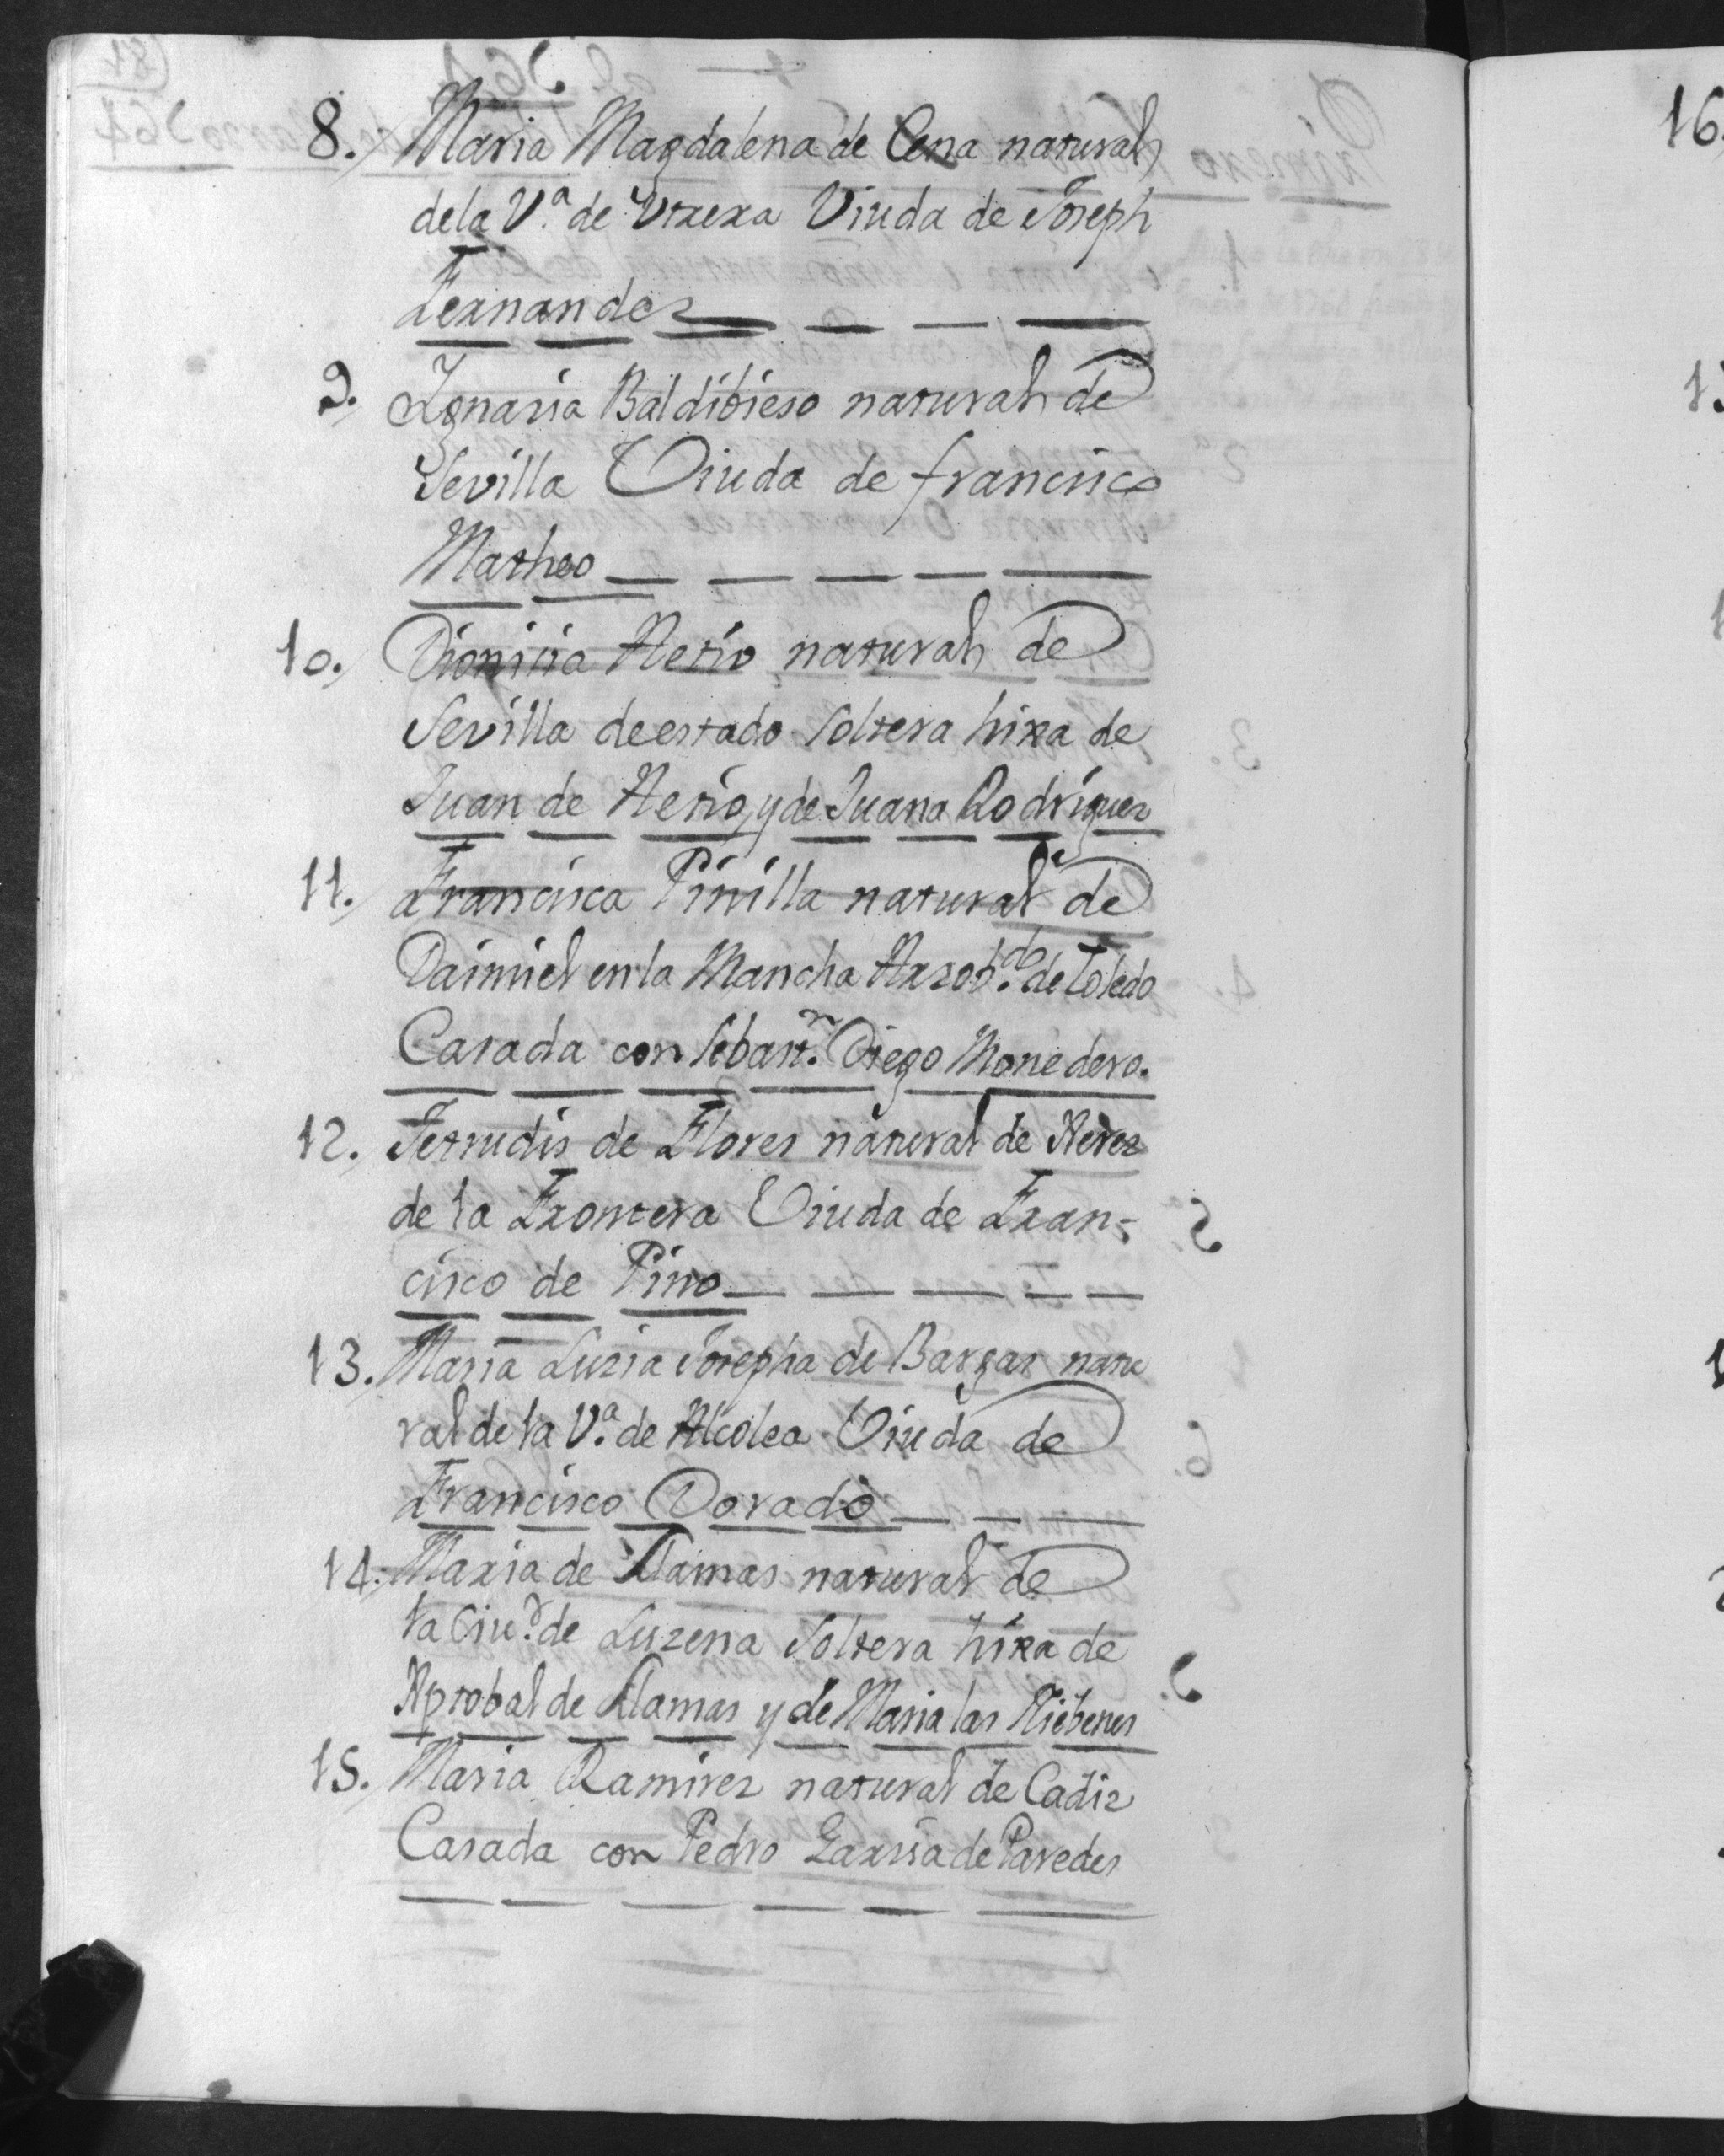 8. Maria Magdalena de Cena natural
de la V.ª de Vtrera Viuda de Joseph
Fernandez
9. Ignasia Baldibieso natural de
Sevilla Viuda de francisco
Matheo
10. Dionisia Nerio natural de
Sevilla de estado soltera hixa de
Juan de Nerio, y de Juana Rodriguez
11. Francisca Pinilla natural de
Daimiel en la Mancha Arzob.do de Toledo
Casada con Sebast.n Diego Monedero.
12. Jetrudis de Flores natural de Xerez
de la Frontera Viuda de Fran-
cisco de Pino
13. Maria Luzia Josepha de Bargas natu
ral de la V.ª de Alcolea Viuda de
Francisco Dorado
14. Maria de Llamas natural de
la Ciu.d de Luzena Soltera hixa de
Xptobal de Llamas y de Maria las Niebenes
15. Maria Ramirez natural de Cadiz
Casada con Pedro Garsia de Paredes
16.